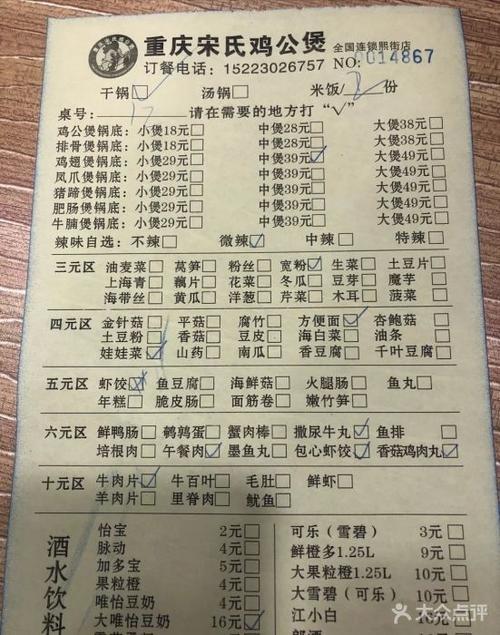 重庆宋氏鸡公煲 全国连锁熙街店
订餐电话：15223026757 NO: 0014867
干锅□ 汤锅□ 米饭 2 份
桌号：17 请在需要的地方打“√”
鸡公煲锅底：小煲18元□ 中煲28元□ 大煲38元□
排骨煲锅底：小煲18元□ 中煲28元□ 大煲38元□
鸡翅煲锅底：小煲29元□ 中煲39元☑ 大煲49元□
凤爪煲锅底：小煲29元□ 中煲39元□ 大煲49元□
猪蹄煲锅底：小煲29元□ 中煲39元□ 大煲49元□
肥肠煲锅底：小煲29元□ 中煲39元□ 大煲49元□
牛腩煲锅底：小煲29元□ 中煲39元□ 大煲49元□
辣味自选：不辣□ 微辣☑ 中辣□ 特辣□
三元区 油麦菜□ 莴笋□ 粉丝□ 宽粉☑ 生菜□ 土豆片□
上海青□ 藕片□ 花菜□ 冬瓜□ 豆芽□ 魔芋□
海带丝□ 黄瓜□ 洋葱□ 芹菜□ 木耳□ 菠菜□
四元区 金针菇□ 平菇□ 腐竹□ 方便面☑ 杏鲍菇□
土豆粉□ 香菇□ 豆皮□ 海白菜□ 油条□
娃娃菜☑ 山药□ 南瓜□ 香豆腐□ 千叶豆腐□
五元区 虾饺☑ 鱼豆腐□ 海鲜菇□ 火腿肠□ 鱼丸□
年糕□ 脆皮肠□ 面筋卷□ 嫩竹笋□
六元区 鲜鸭肠□ 鹌鹑蛋□ 蟹肉棒□ 撒尿牛丸☑ 鱼排□
培根肉□ 午餐肉☑ 墨鱼丸□ 包心虾饺☑ 香菇鸡肉丸☑
十元区 牛肉片☑ 牛百叶□ 毛肚□ 鲜虾□
羊肉片□ 里脊肉□ 鱿鱼□
酒水饮料
怡宝 2元□ 可乐（雪碧） 3元□
脉动 4元□ 鲜橙多1.25L 9元□
加多宝 5元□ 大果粒橙1.25L 10元□
果粒橙 4元□ 大雪碧（可乐） 10元□
唯怡豆奶 4元□ 江小白
大唯怡豆奶 16元☑
大众点评